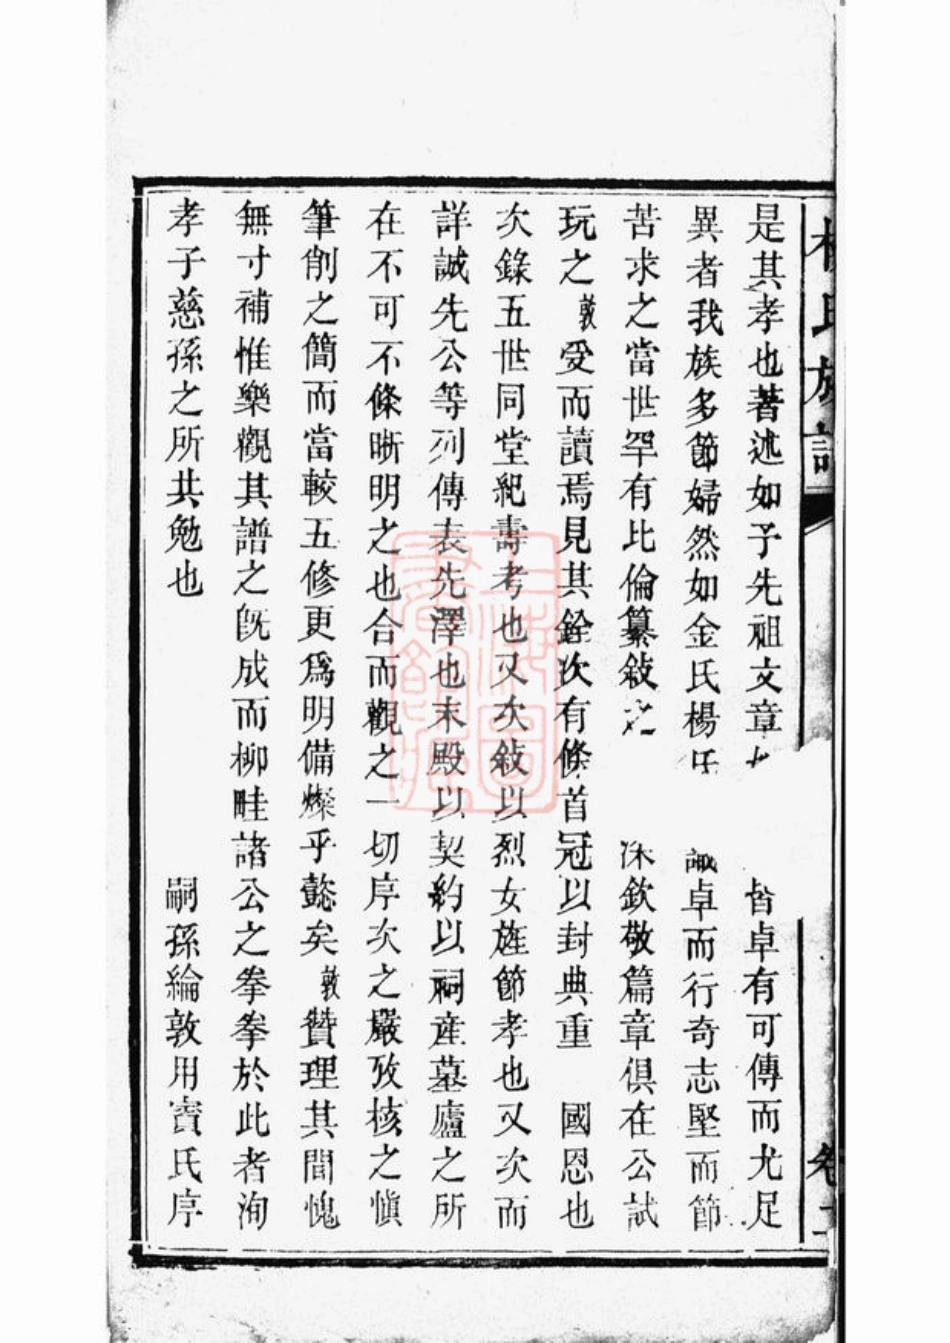 氏族譜
是其孝也著述如予先祖文章 皆卓有可傳而尤足
異者我族多節婦然如金氏楊氏 諏卓而行奇志堅而節
苦求之當世罕有比倫纂敍之 深欽敬篇章俱在公試
玩之敦受而讀焉見其銓次有條首冠以封典重 國恩也
次錄五世同堂紀壽考也又次敘以烈女旌節孝也又次而
詳誠先公等列傳表先澤也末殿以契約以祠產墓廬之所
在不可不條晰明之也合而觀之一切序次之嚴攷核之愼
筆削之簡而當較五修更爲明備燦乎懿矣敦贊理其間愧
無寸補惟樂觀其譜之旣成而柳畦諸公之拳拳於此者洵
孝子慈孫之所共勉也 嗣孫綸敦用賓氏序